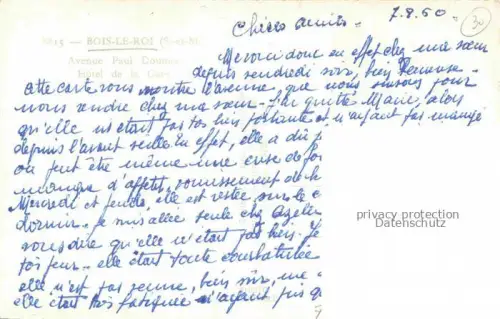 7.8.60
Chères amies
8815 - BOIS-LE-ROI (S.-et-M.)
Avenue Paul Doumer
Hôtel de la Gare
Me voici donc en effet chez ma sœur
depuis vendredi soir, bien
cette carte vous montre l'avenue, que nous suivons pour
nous rendre chez ma sœur - J'ai quitté Marie, alors
qu'elle n'était pas très bien portante et n'ayant pas mangé
depuis l'avant veille en effet, elle a dû
ou peut être même une crise de
manque d'appétit, vomissement de
Mercredi et jeudi, elle est restée sur le
dormir. je suis allée seule chez
vous dire qu'elle n'était pas bien.
pas peur - elle était toute courbaturée
elle n'est pas jeune, bien sûr, une
elle était très fatiguée n'ayant pris
privacy protection
Datenschutz